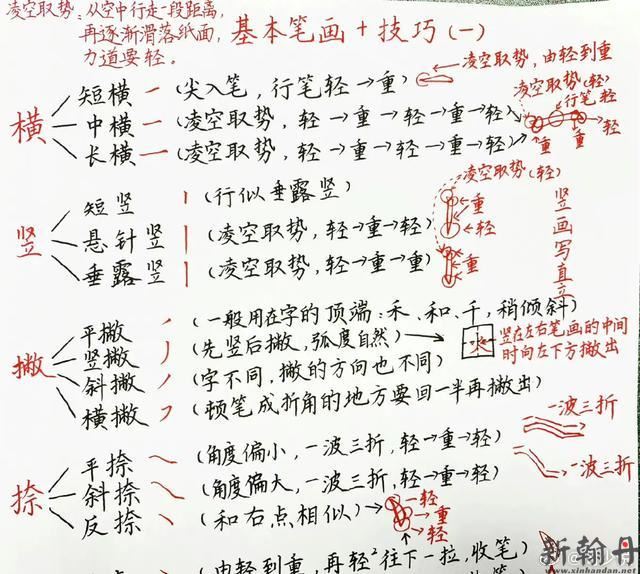 凌空取势：从空中行走一段距离，
再逐渐滑落纸面，
力道要轻。
基本笔画+技巧(一)
横
短横 一 (尖入笔，行笔轻→重)
凌空取势，由轻到重
中横 一 (凌空取势，轻→重→轻→重→轻)
长横 一 (凌空取势，轻→重→轻→重→轻)
凌空取势(轻)
行笔轻
轻
重
重
竖
短竖 丨 (行似垂露竖)
悬针竖 丨 (凌空取势，轻→重→轻)
垂露竖 丨 (凌空取势，轻→重→重)
凌空取势(轻)
重
轻
重
竖画写直立
撇
平撇 (一般用在字的顶端：禾、和、千，稍倾斜)
竖撇 (先竖后撇，弧度自然)→
竖在左右笔画的中间
时向左下方撇出
斜撇 (字不同，撇的方向也不同)
横撇 (顿笔成折角的地方要回一半再撇出)
捺
平捺 (角度偏小，一波三折，轻→重→轻)
一波三折
斜捺 (角度偏大，一波三折，轻→重→轻)
一波三折
反捺 (和右点相似)→
轻
重
轻
(由轻到重，再轻往下一拉，收笔)
新翰丹
www.xinhandan.net